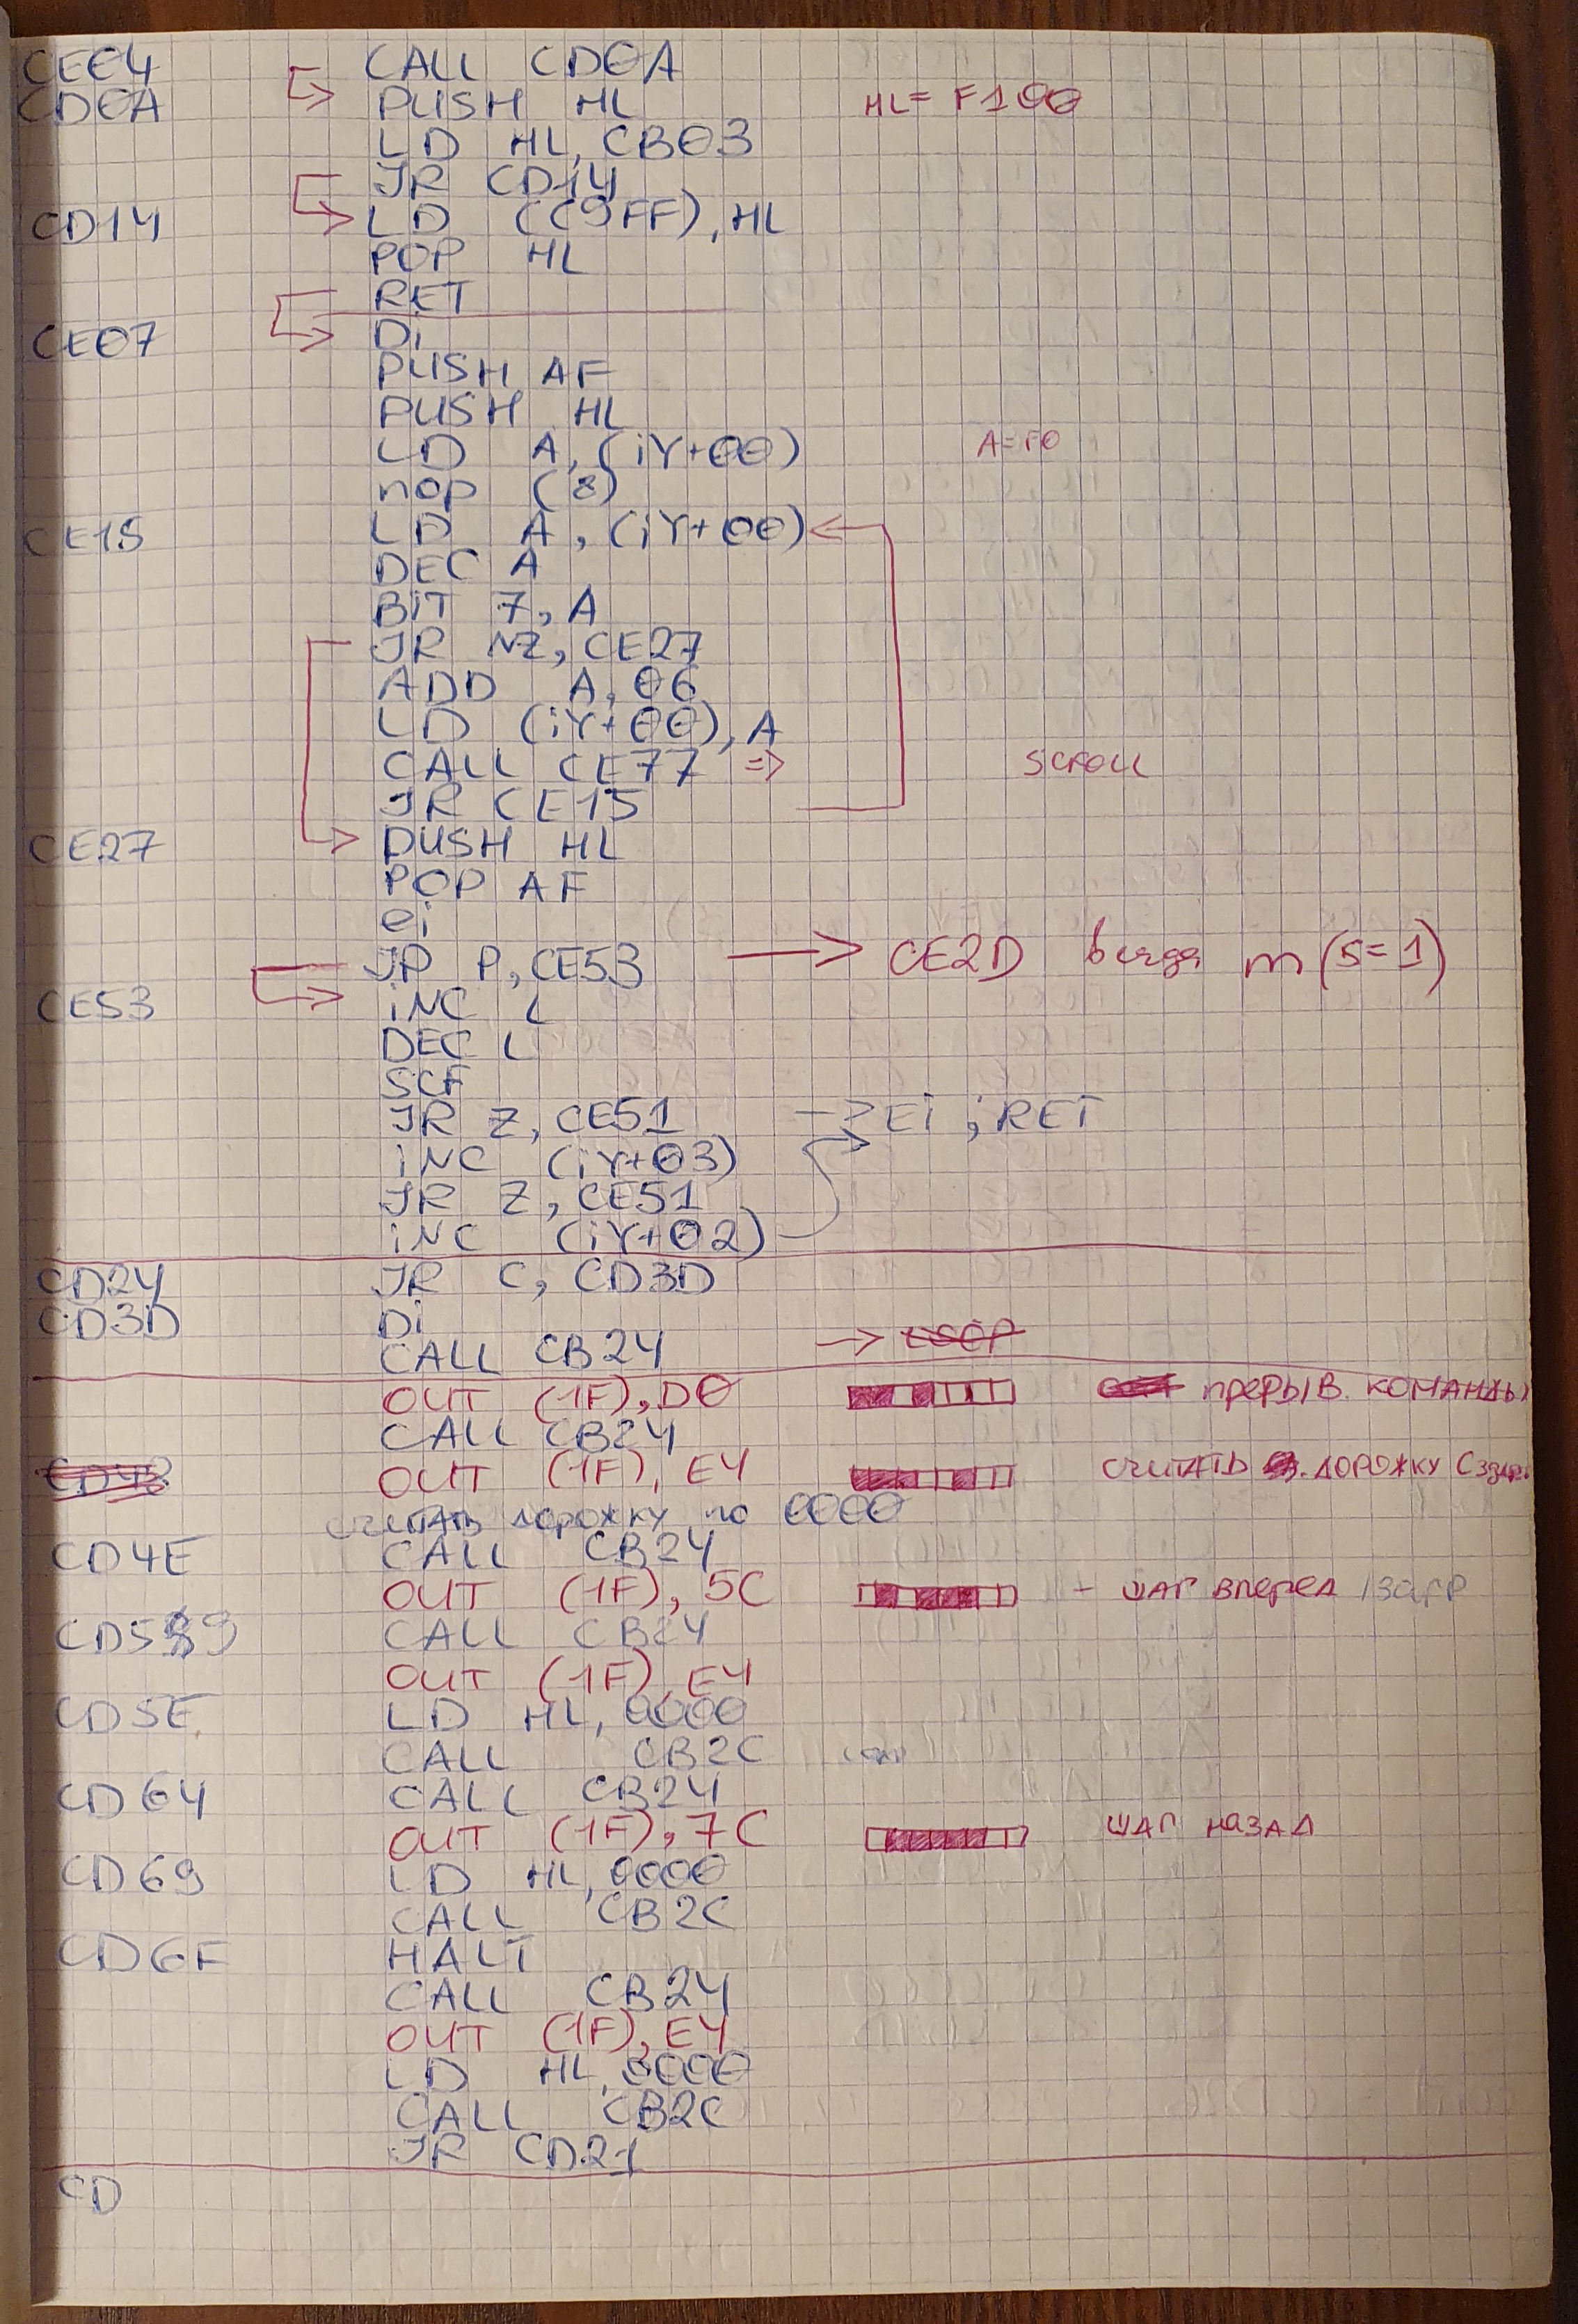 CE04 CALL CD0A
CD0A PUSH HL HL= F100
LD HL, CB03
JR CD14
CD14 LD (C9FF), HL
POP HL
RET
CE07 Di
PUSH AF
PUSH HL
LD A, (iY+00) A=F0
nop (8)
CE15 LD A, (iY+00)
DEC A
BiT 7, A
JR NZ, CE27
ADD A, 06
LD (iY+00), A
CALL CE77 => SCROLL
JR CE15
CE27 PUSH HL
POP AF
ei
JP P, CE53 → CE2D всегда m (S=1)
CE53 iNC L
DEC L
SCF
JR Z, CE51 → EI ; RET
iNC (iY+03)
JR Z, CE51
iNC (iY+02)
CD24 JR C, CD3D
CD3D Di
CALL CB24 →
OUT (1F), D0 прерыв. команды
CALL CB24
CD43 OUT (1F), E4 считать дорожку с
считать дорожку по 0000
CD4E CALL CB24
OUT (1F), 5C - шаг вперед /загр
CD59 CALL CB24
OUT (1F), E4
CD5E LD HL, 0000
CALL CB2C
CD64 CALL CB24
OUT (1F), 7C шаг назад
CD69 LD HL, 0000
CALL CB2C
CD6F HALT
CALL CB24
OUT (1F), E4
LD HL, 0000
CALL CB2C
JR CD21
CD